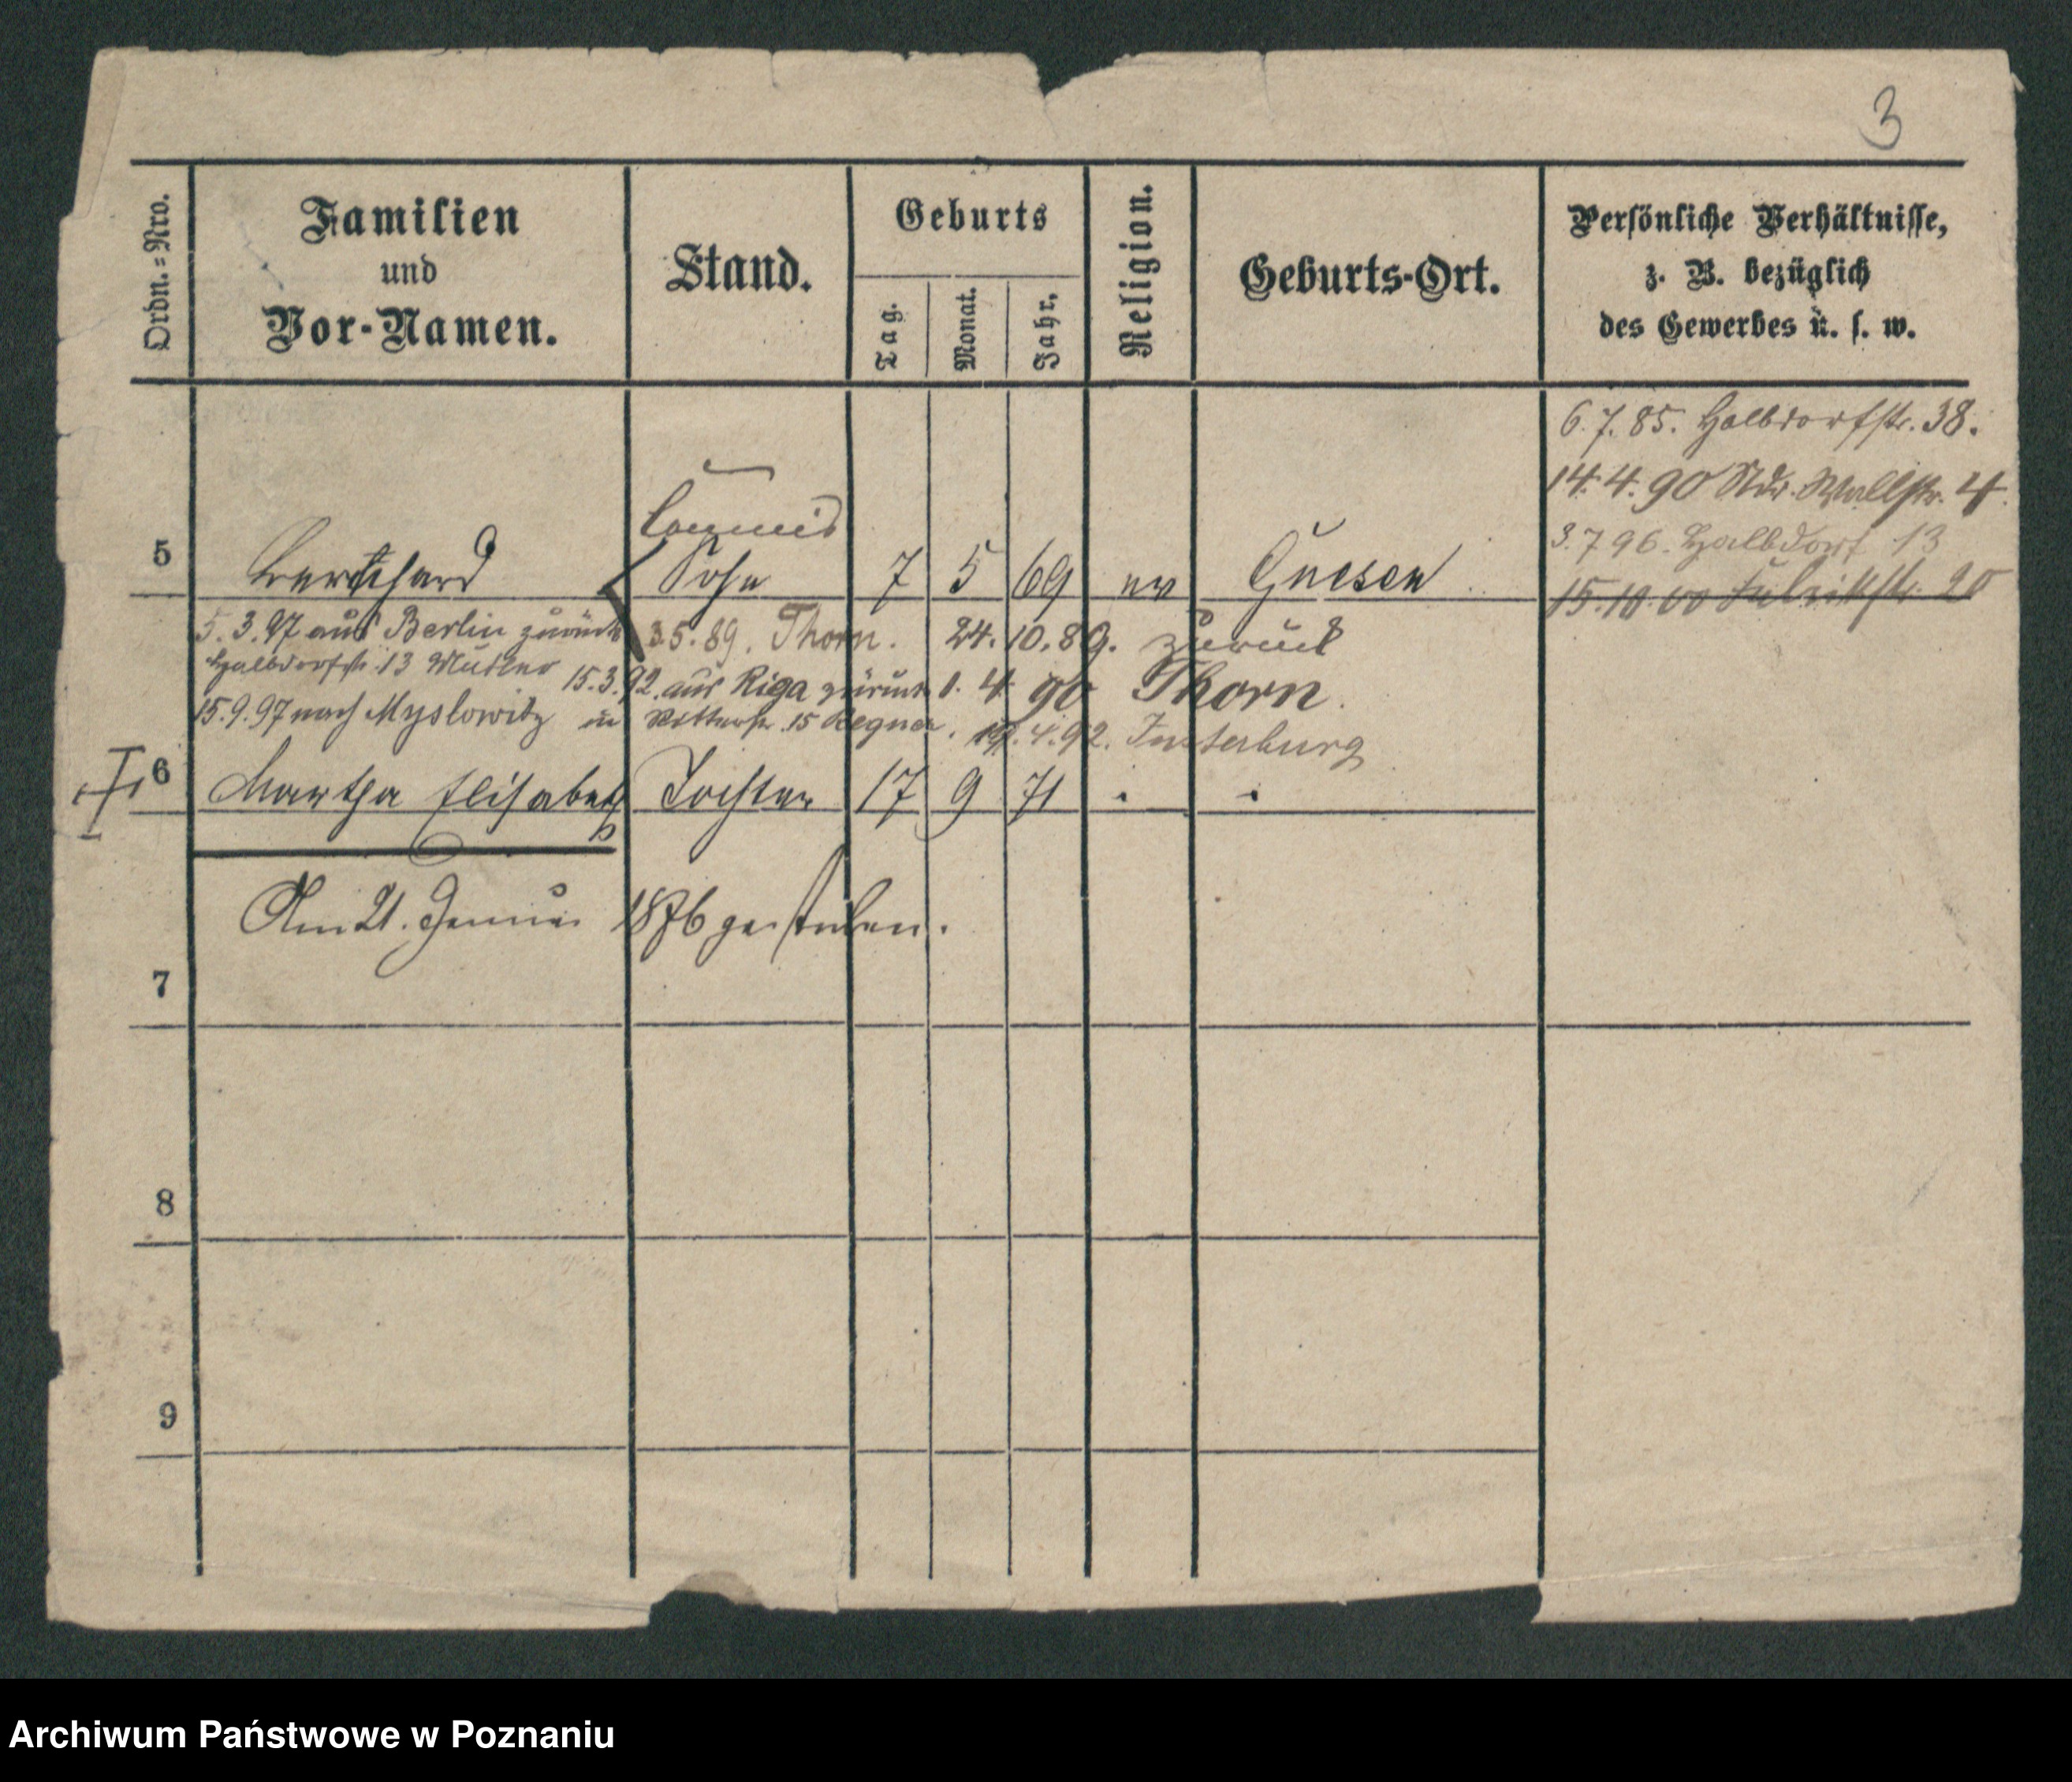 3
Ordn.=Nro.
Familien
und
Vor-Namen.
Stand.
Geburts
Tag.
Monat.
Jahr.
Religion.
Geburts-Ort.
Persönliche Verhältnisse,
z. B. bezüglich
des Gewerbes u. s. w.
6. 7. 85. Halbdorfstr. 38.
14. 4. 90 Ndr. Wallstr. 4.
3. 7 96. Halbdorf 13
15. 10. 00 20
Commis
5 Bernhard Sohn 7 5 69 ev Gnesen
5. 3. 97 aus Berlin zurück 3. 5. 89. Thorn. 24. 10. 89. zurück
Halbdorfstr. 13 Mutter 15. 3. 92. aus Riga zurück 1. 4 90 Thorn.
15. 9. 97 nach Myslowitz in Ritterstr. 15 19. 4. 92. Insterburg
6 Martha Elisabeth Tochter 17 9 71 " "
Am 21. Januar 1876 gestorben.
7
8
9
Archiwum Państwowe w Poznaniu